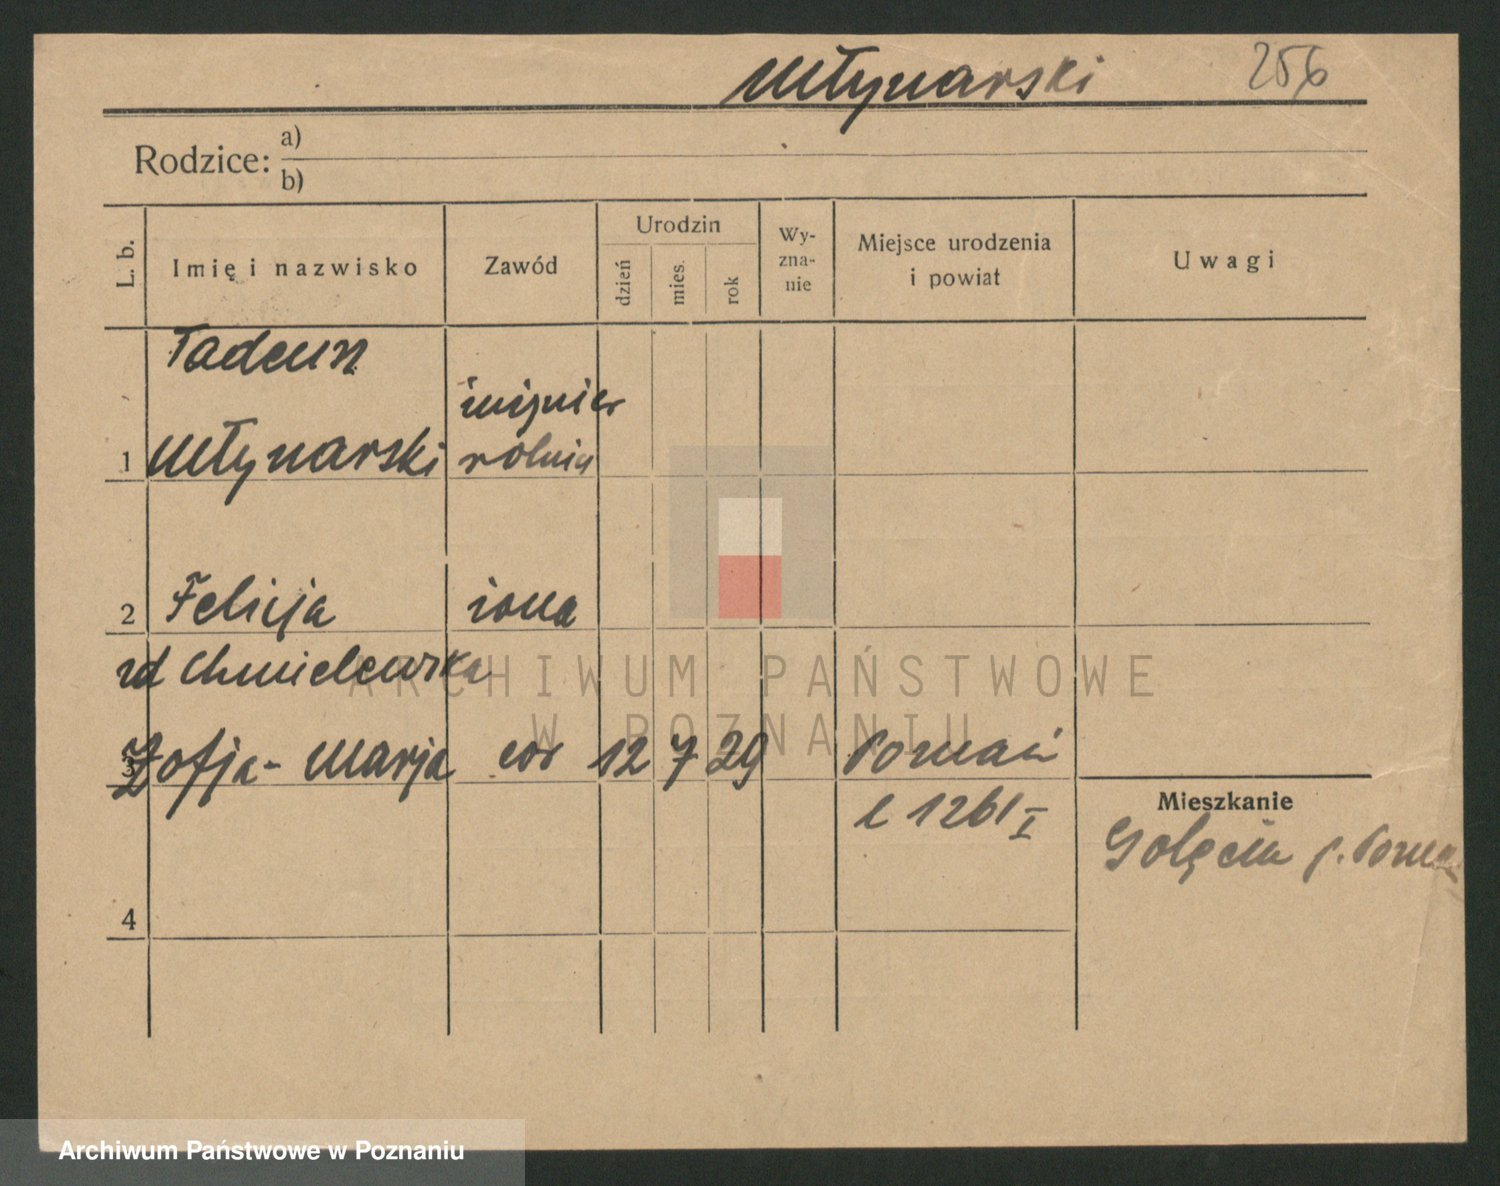 Młynarski 256
Rodzice: a)
b)
L. b.
Imię i nazwisko
Zawód
Urodzin
dzień
mies.
rok
Wy-
zna-
nie
Miejsce urodzenia
i powiat
Uwagi
Tadeusz
inżynier
1 Młynarski rolniczy
2 Felicja żona
zd Chmielewska
3 Zofja - Marja cór 12 7 29 Poznań
l 1261 I
Mieszkanie
Golęcin p. Poznań
4
ARCHIWUM PAŃSTWOWE
W POZNANIU
Archiwum Państwowe w Poznaniu